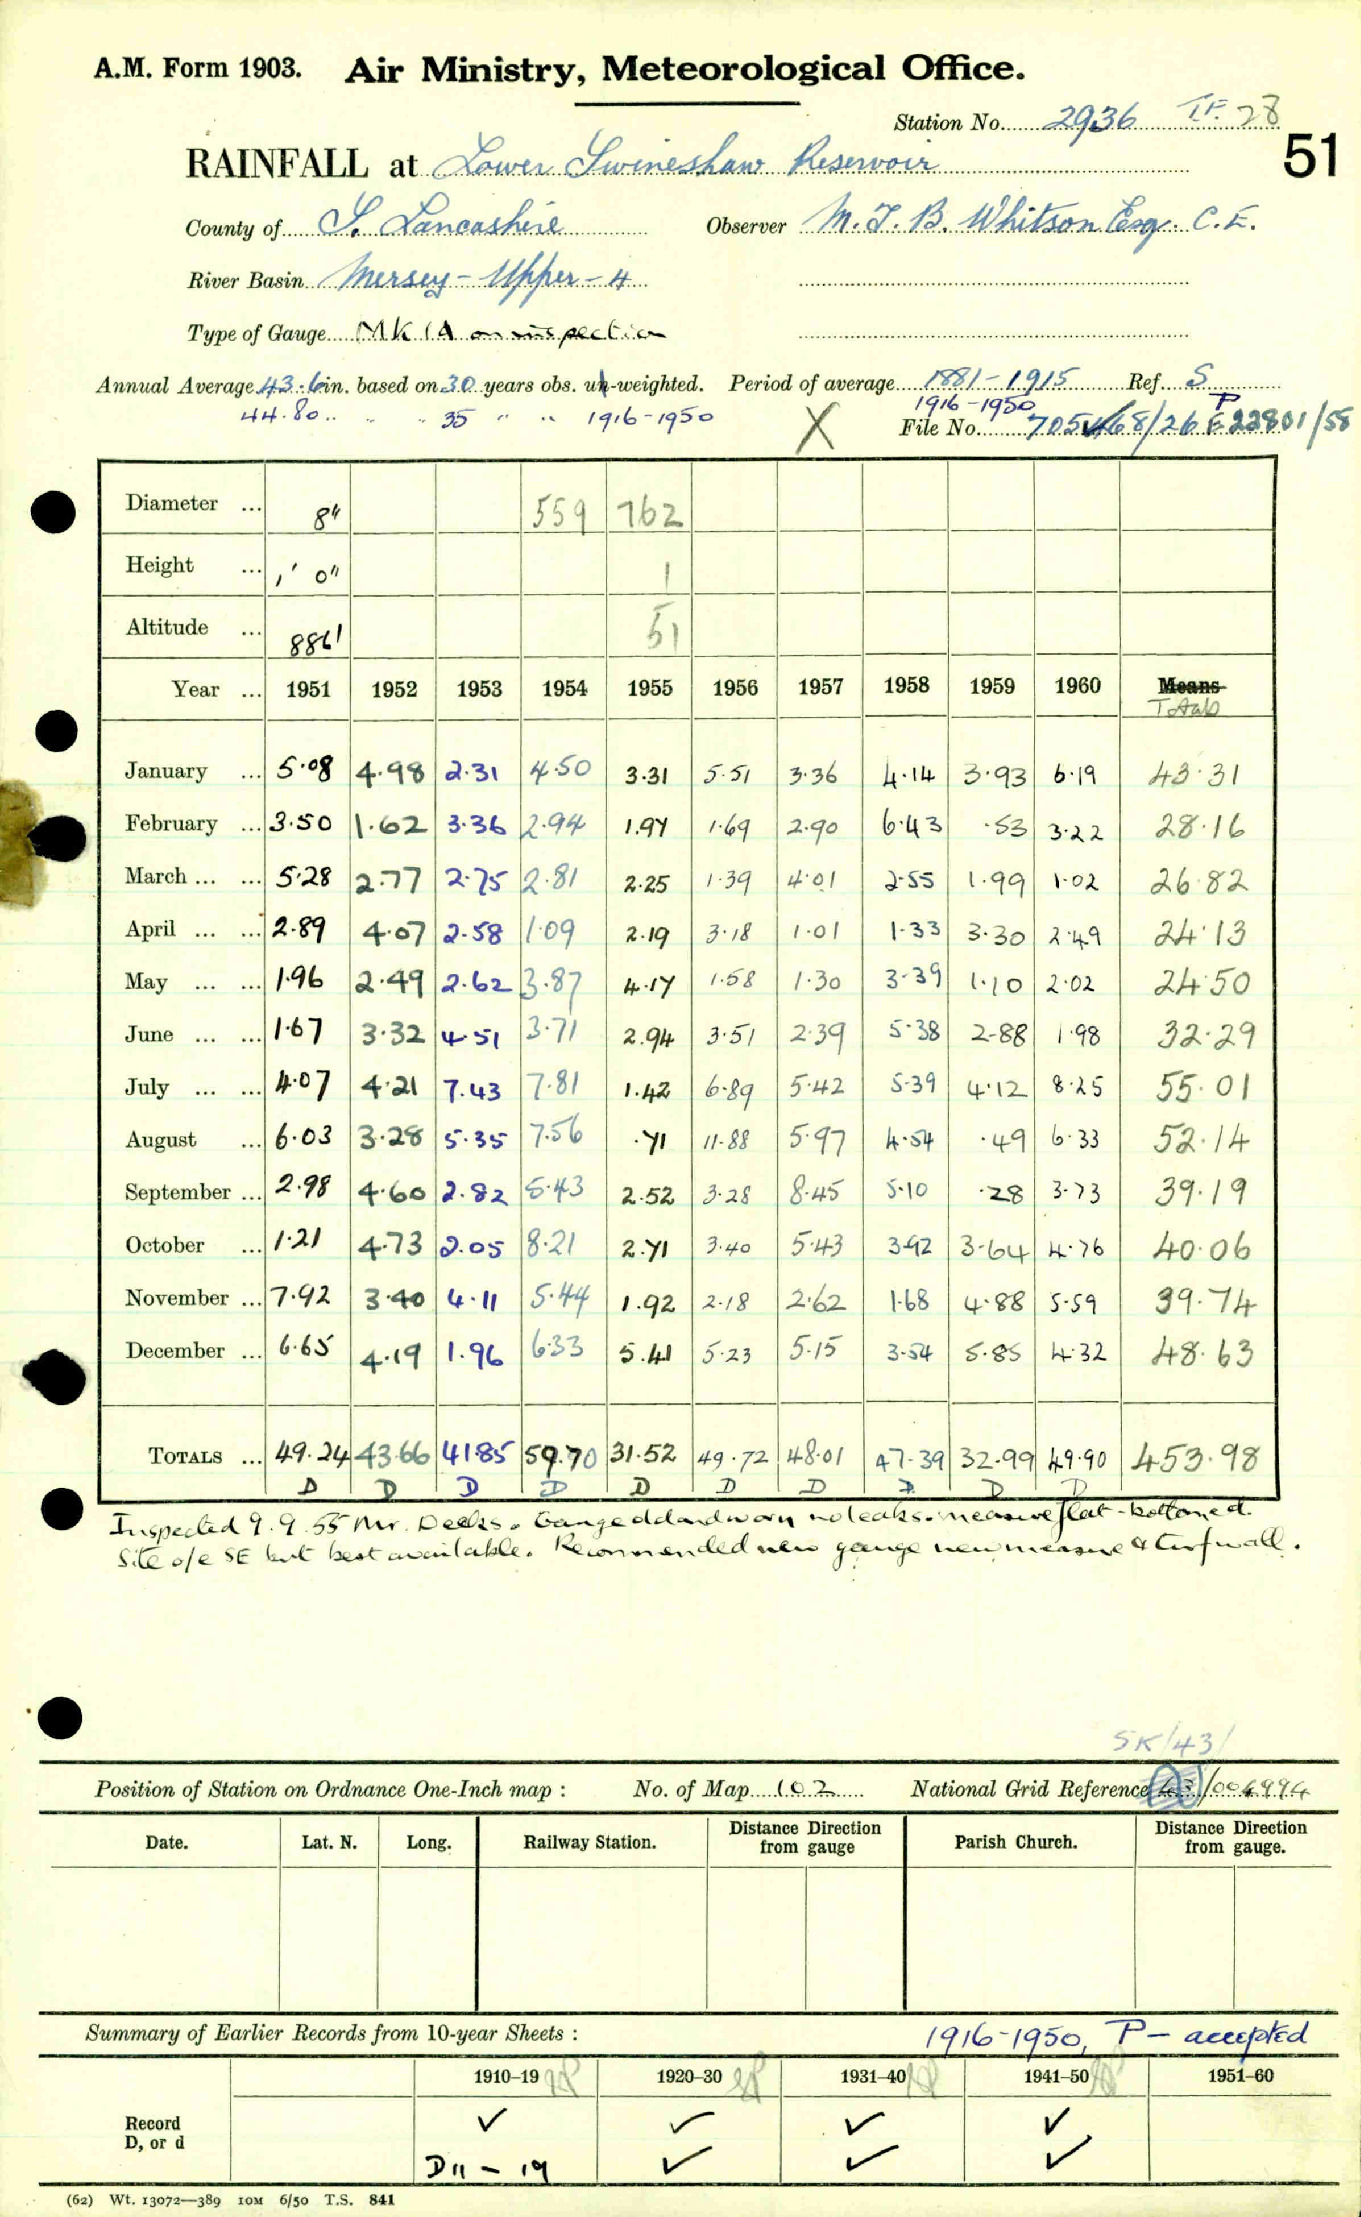 A.M. Form 1903. Air Ministry, Meteorological Office.
Station No. 2936 T.F. 28
51
RAINFALL at Lower Swineshaw Reservoir
County of S. Lancashire Observer M. J. B. Whitson Esq. C.E.
River Basin Mersey - Upper - 4
Type of Gauge MK 1A on inspection
Annual Average 43.6 in. based on 30 years obs. un-weighted. Period of average 1881-1915 Ref. S
44.80 .. .. .. 35 " .. 1916-1950 1916-1950 P
X File No. 705468/26 E 22801/58
Diameter ... 8" 559 762
Height ... 1' 0" 1
Altitude ... 886' 51
Year ... 1951 1952 1953 1954 1955 1956 1957 1958 1959 1960 Means
Totals
January ... 5.08 4.98 2.31 4.50 3.31 5.51 3.36 4.14 3.93 6.19 43.31
February ... 3.50 1.62 3.36 2.94 1.97 1.69 2.90 6.43 .53 3.22 28.16
March ... ... 5.28 2.77 2.75 2.81 2.25 1.39 4.01 2.55 1.99 1.02 26.82
April ... ... 2.89 4.07 2.58 1.09 2.19 3.18 1.01 1.33 3.30 2.49 24.13
May ... ... 1.96 2.49 2.62 3.87 4.17 1.58 1.30 3.39 1.10 2.02 24.50
June ... ... 1.67 3.32 4.51 3.71 2.94 3.51 2.39 5.38 2.88 1.98 32.29
July ... ... 4.07 4.21 7.43 7.81 1.42 6.89 5.42 5.39 4.12 8.25 55.01
August ... 6.03 3.28 5.35 7.56 .71 11.88 5.97 4.54 .49 6.33 52.14
September ... 2.98 4.60 2.82 5.43 2.52 3.28 8.45 5.10 .28 3.73 39.19
October ... 1.21 4.73 2.05 8.21 2.71 3.40 5.43 3.92 3.64 4.76 40.06
November ... 7.92 3.40 4.11 5.44 1.92 2.18 2.62 1.68 4.88 5.59 39.74
December ... 6.65 4.19 1.96 6.33 5.41 5.23 5.15 3.54 5.85 4.32 48.63
TOTALS ... 49.24 43.66 41.85 59.70 31.52 49.72 48.01 47.39 32.99 49.90 453.98
D D D D D D D D D D
Inspected 9.9.55 Mr. Deeks. Gauge old and worn no leaks. measure flat-bottomed.
Site o/e SE but best available. Recommended new gauge new measure & turf wall.
SK/43/
Position of Station on Ordnance One-Inch map : No. of Map 102 National Grid Reference 43/006994
Date. Lat. N. Long. Railway Station. Distance Direction from gauge Parish Church. Distance Direction from gauge.
Summary of Earlier Records from 10-year Sheets : 1916-1950, P - accepted
1910–19 1920–30 1931–40 1941–50 1951–60
Record ✓ ✓ ✓ ✓
D, or d D 11 - 19 ✓ ✓ ✓
(62) Wt. 13072—389 10M 6/50 T.S. 841